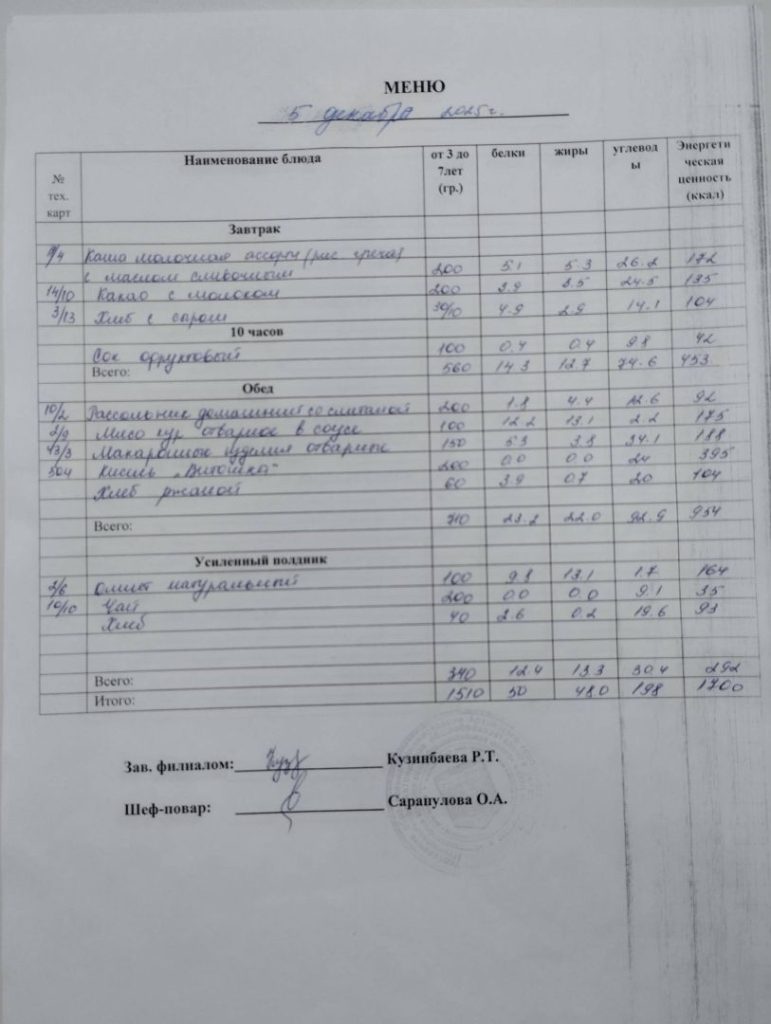 МЕНЮ
5 декабря 2025 г.
№ тех. карт Наименование блюда от 3 до 7лет (гр.) белки жиры углеводы Энергетическая ценность (ккал)
Завтрак
9/4 Каша молочная ассорти (рис греча)
с маслом сливочным 200 5.1 5.3 26.2 172
14/10 Какао с молоком 200 3.9 3.5 24.5 135
3/13 Хлеб с сыром 30/10 4.9 2.9 14.1 104
10 часов
Сок фруктовый 100 0.4 0.4 9.8 42
Всего: 560 14.3 12.7 74.6 453
Обед
10/2 Рассольник домашний со сметаной 200 1.8 4.4 12.6 92
2/9 Мясо кур отварное в соусе 100 12.2 13.1 2.2 175
43/3 Макаронные изделия отварные 150 5.3 3.8 34.1 188
504 Кисель „Витошка" 200 0.0 0.0 24 395
Хлеб ржаной 60 3.9 0.7 20 104
Всего: 710 23.2 22.0 92.9 954
Усиленный полдник
2/6 Омлет натуральный 100 9.8 13.1 1.7 164
10/10 Чай 200 0.0 0.0 9.1 35
Хлеб 40 2.6 0.2 19.6 93
Всего: 340 12.4 13.3 30.4 292
Итого: 1510 50 48.0 198 1700
Зав. филиалом: Кузинбаева Р.Т.
Шеф-повар: Сарапулова О.А.